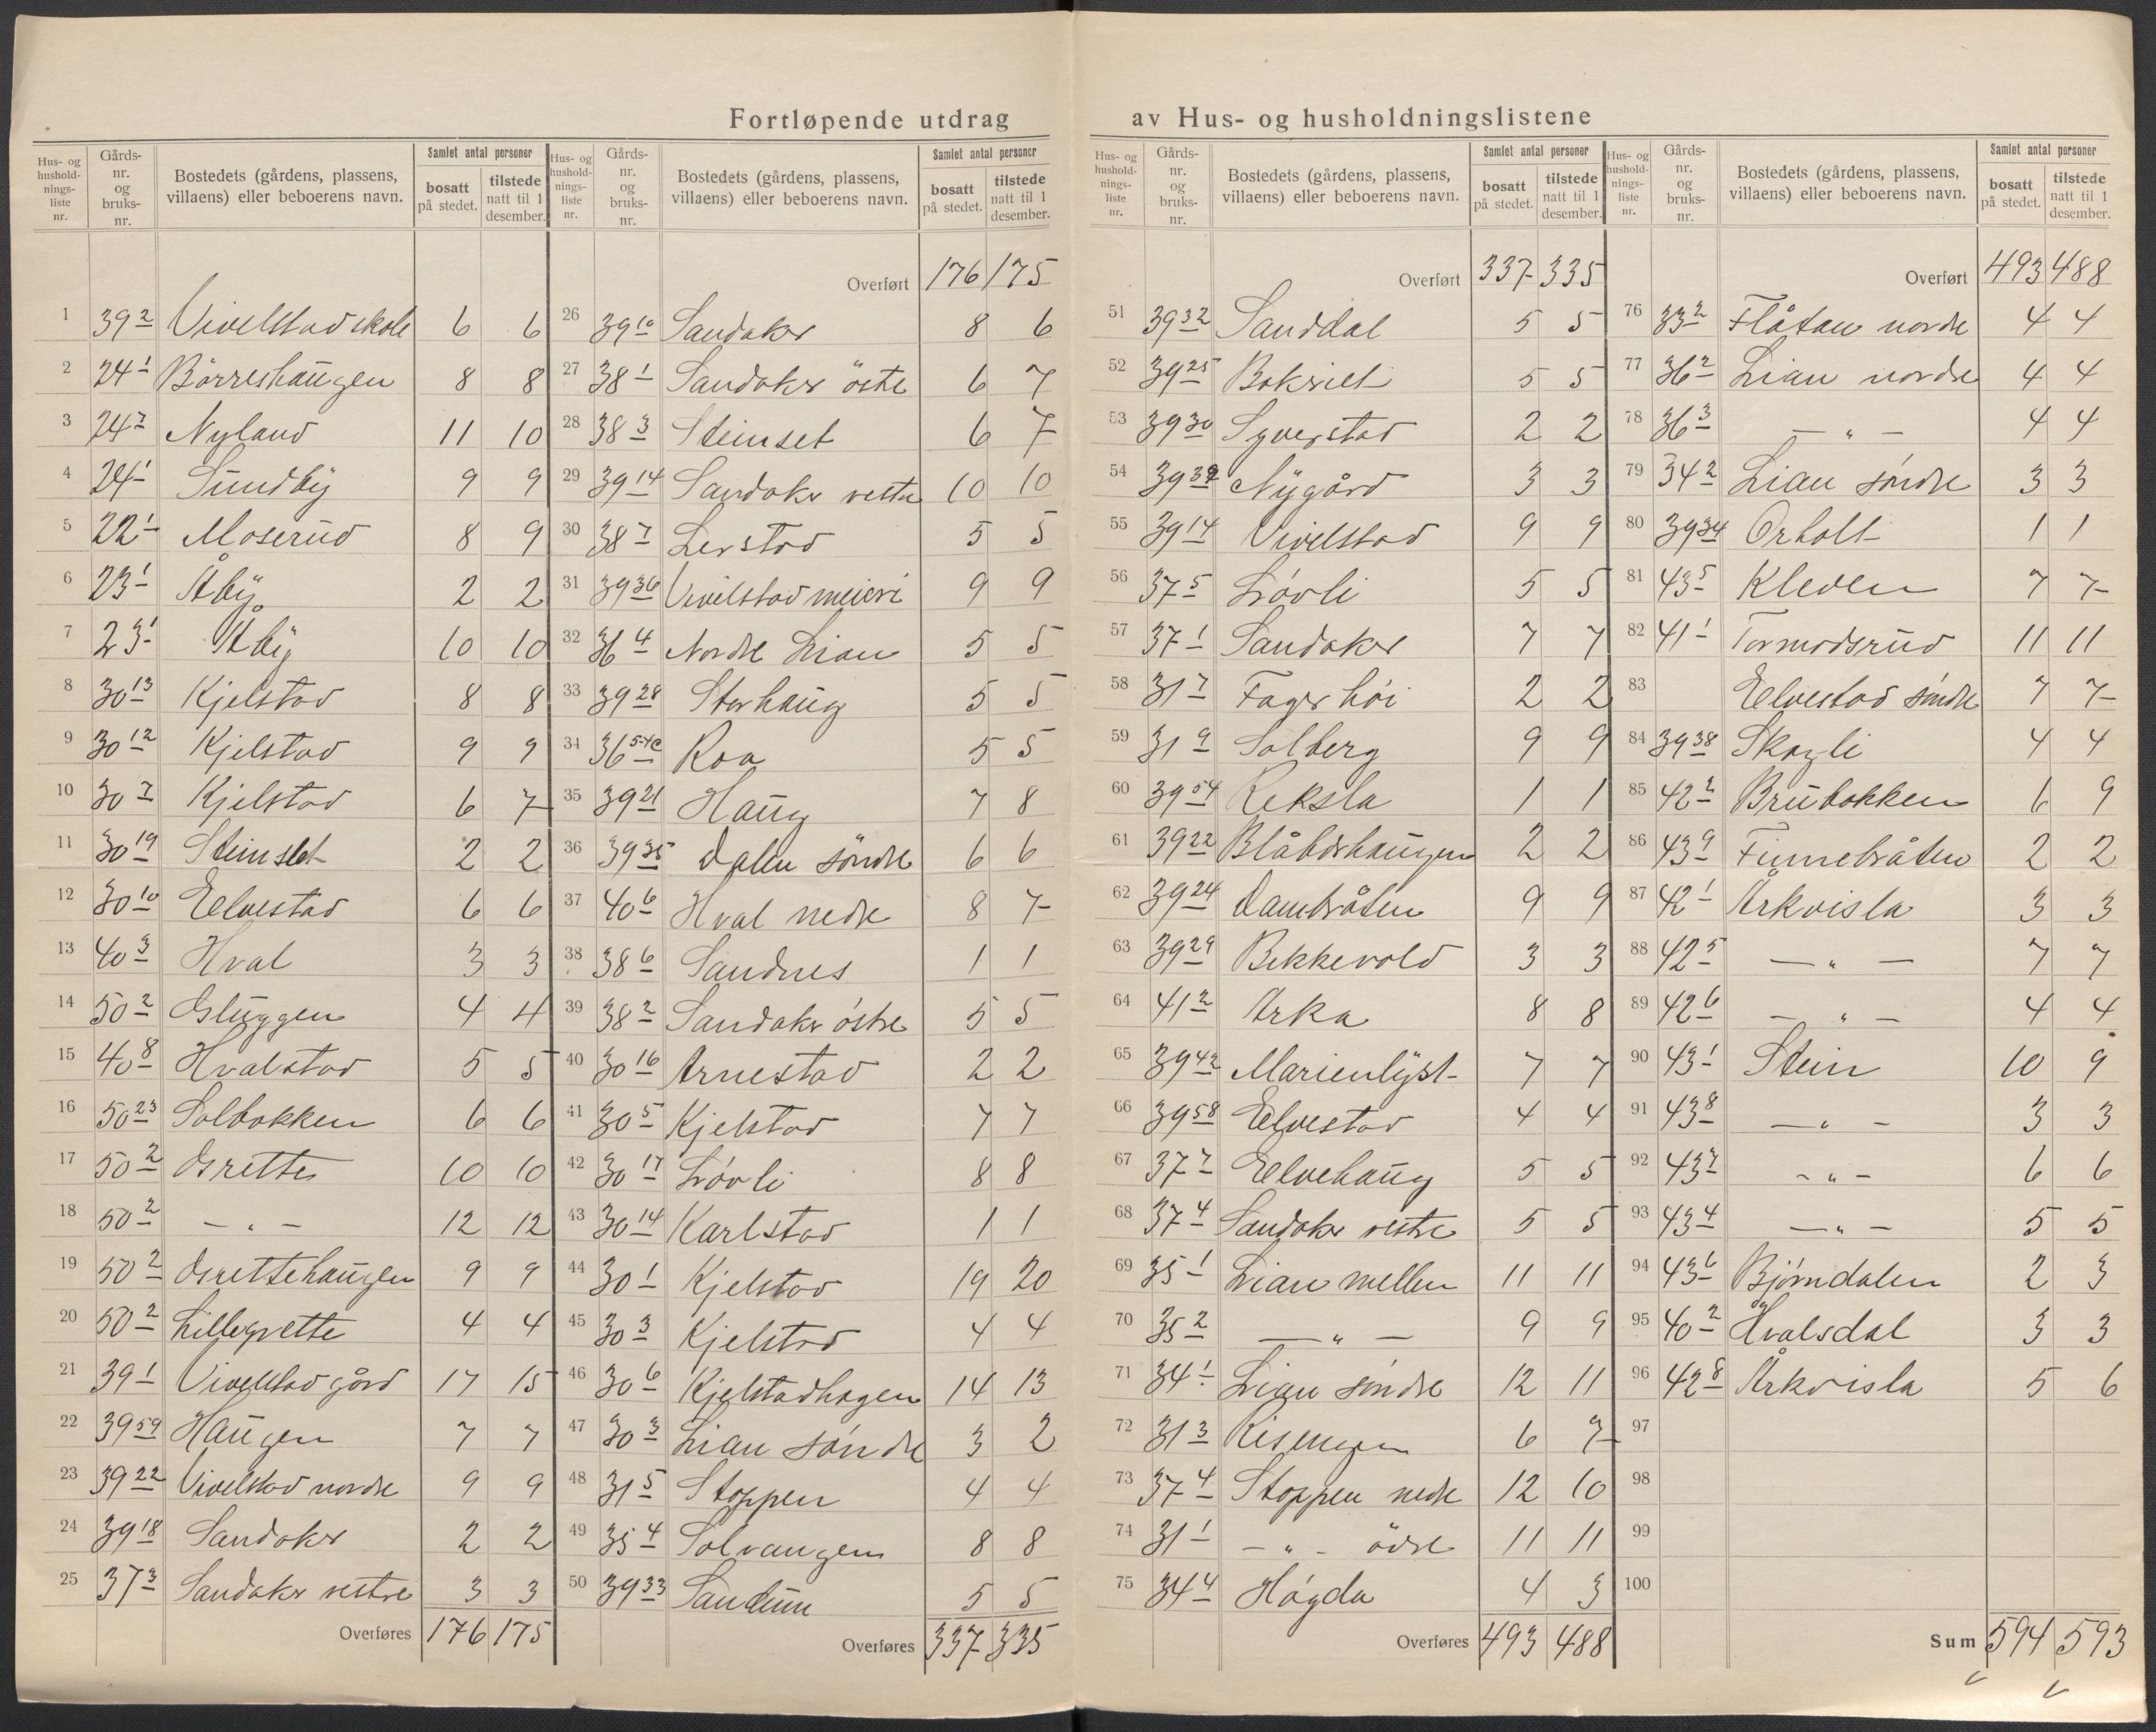 Fortløpende utdrag av Hus- og husholdningslistene
Hus- og hushold-nings-liste nr. | Gårds-nr. og bruks-nr. | Bostedets (gårdens, plassens, villaens) eller beboerens navn. | Samlet antal personer | bosatt på stedet. | tilstede natt til 1 desember.
1 39 2 Vivelstad skole 6 6
2 24 1 Börreshaugen 8 8
3 24 2 Nyland 11 10
4 24 1 Sundby 9 9
5 22 1 Moserud 8 9
6 23 1 Åby 2 2
7 23 1 Åby 10 10
8 30 13 Kjelstad 8 8
9 30 12 Kjelstad 9 9
10 30 7 Kjelstad 6 7
11 30 19 Steinslet 2 2
12 30 10 Eelvestad 6 6
13 40 3 Hval 3 3
14 50 2 Gluggen 4 4
15 40 8 Hvalstad 5 5
16 50 23 Solbakken 6 6
17 50 2 Gretten 10 10
18 50 2 — " — 12 12
19 50 2 Grettehaugen 9 9
20 50 2 Lillegrette 4 4
21 39 1 Vivelstad gård 17 15
22 39 59 Haugen 7 7
23 39 22 Vivelstad nordre 9 9
24 39 18 Sandaker 2 2
25 37 3 Sandaker vestre 3 3
Overføres 176 175
Hus- og hushold-nings-liste nr. | Gårds-nr. og bruks-nr. | Bostedets (gårdens, plassens, villaens) eller beboerens navn. | Samlet antal personer | bosatt på stedet. | tilstede natt til 1 desember.
Overført 176 175
26 39 10 Sandaker 8 6
27 38 1 Sandaker östre 6 7
28 38 3 Steinset 6 7
29 39 14 Sandaker vestre 10 10
30 38 7 Lerstad 5 5
31 39 36 Vivelstad meieri 9 9
32 36 4 Nordre Lian 5 5
33 39 28 Storhaug 5 5
34 36 Roa 5 5
35 39 21 Haug 7 8
36 39 35 Dalen søndre 6 6
37 40 6 Hval nedre 8 7
38 38 6 Sandnes 1 1
39 38 2 Sandaker östre 5 5
40 30 16 Arnestad 2 2
41 30 5 Kjelstad 7 7
42 30 17 Lövli 8 8
43 30 14 Karlstad 1 1
44 30 1 Kjelstad 19 20
45 30 3 Kjelstad 4 4
46 30 6 Kjelstadhagen 14 13
47 30 3 Lian söndre 3 2
48 31 5 Stoppen 4 4
49 35 4 Solvangen 8 8
50 39 33 Sandum 5 5
Overføres 337 335
Hus- og hushold-nings-liste nr. | Gårds-nr. og bruks-nr. | Bostedets (gårdens, plassens, villaens) eller beboerens navn. | Samlet antal personer | bosatt på stedet. | tilstede natt til 1 desember.
Overført 337 335
51 39 32 Sanddal 5 5
52 39 25 Bakriet 5 5
53 39 30 Syverstad 2 2
54 39 Nygård 3 3
55 39 14 Vivelstad 9 9
56 37 5 Lövli 5 5
57 37 1 Sandaker 7 7
58 31 7 Fagerhöi 2 2
59 31 9 Solberg 9 9
60 39 54 Reksla 1 1
61 39 22 Blåbærhaugen 2 2
62 39 24 Dambråten 9 9
63 39 29 Bekkevold 3 3
64 41 2 Arka 8 8
65 39 42 Marienlyst 7 7
66 39 58 Eelvestad 4 4
67 37 7 Eelvehaug 5 5
68 37 4 Sandaker vestre 5 5
69 35 1 Lian mellem 11 11
70 35 2 — " — 9 9
71 34 1 Lian söndre 12 11
72 31 3 Risengen 6 7
73 37 4 Stoppen nedre 12 10
74 31 1 — " — övre 11 11
75 34 4 Högda 4 3
Overføres 493 488
Hus- og hushold-nings-liste nr. | Gårds-nr. og bruks-nr. | Bostedets (gårdens, plassens, villaens) eller beboerens navn. | Samlet antal personer | bosatt på stedet. | tilstede natt til 1 desember.
Overført 493 488
76 33 2 Flåtan nordre 4 4
77 36 2 Lian nordre 4 4
78 36 3 — " — 4 4
79 34 2 Lian söndre 3 3
80 39 34 Orholt 1 1
81 43 5 Kleven 7 7
82 41 1 Tormodsrud 11 11
83 Eelvestad söndre 7 7
84 39 38 Skogli 4 4
85 42 2 Brubakken 6 9
86 43 9 Finnebråten 2 2
87 42 1 Årkvisla 3 3
88 42 5 — " — 7 7
89 42 6 — " — 4 4
90 43 1 Stein 10 9
91 43 8 — " — 3 3
92 43 7 — " — 6 6
93 43 4 — " — 5 5
94 43 6 Bjørndalen 2 3
95 40 2 Hvalsdal 3 3
96 42 8 Årkvisla 5 6
97
98
99
100
Sum 594 593